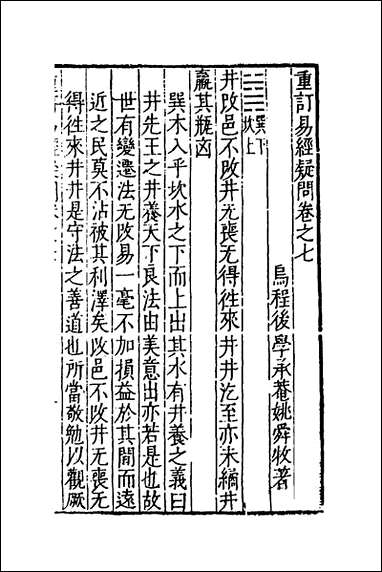 重訂易經疑問卷之七
烏程後學承菴姚舜牧著
巽下
坎上
井改邑不改井无喪无得徃來井井汔至亦未繘井
羸其瓶凶
巽木入乎坎水之下而上出其水有井養之義曰
井先王之井養天下良法由美意出亦若是也故
世有變遷法无改易一毫不加損益於其間而遠
近之民莫不沾被其利澤矣改邑不改井无喪无
得徃來井井是守法之善道也所當敬勉以觀厥